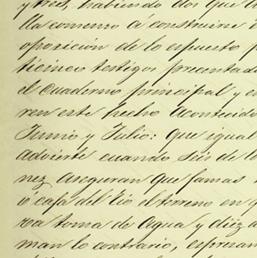 y tres, habiendo dos que
lla comenzó á construirse
oposicion de lo espuesto p
ticinco testigos presentad
el Cuaderno principal y e
ren este hecho acontecido
Junio y Julio: que igual
advierte cuando seis de lo
nez aseguran que jamas
ó caja del rio el terreno en q
va toma de agua y diez a
man lo contrario, espresan